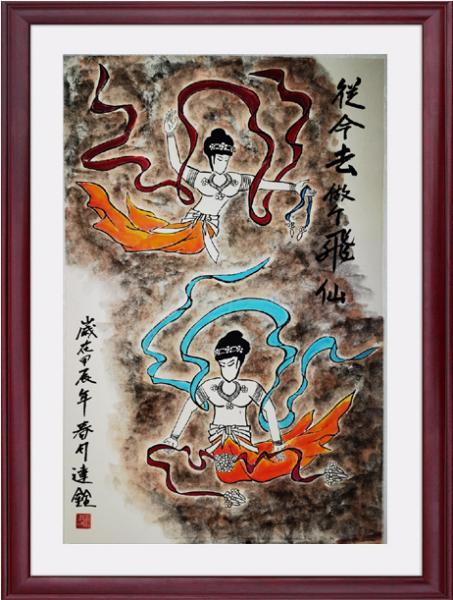 從今去做飛仙
歲在甲辰年春月達銓